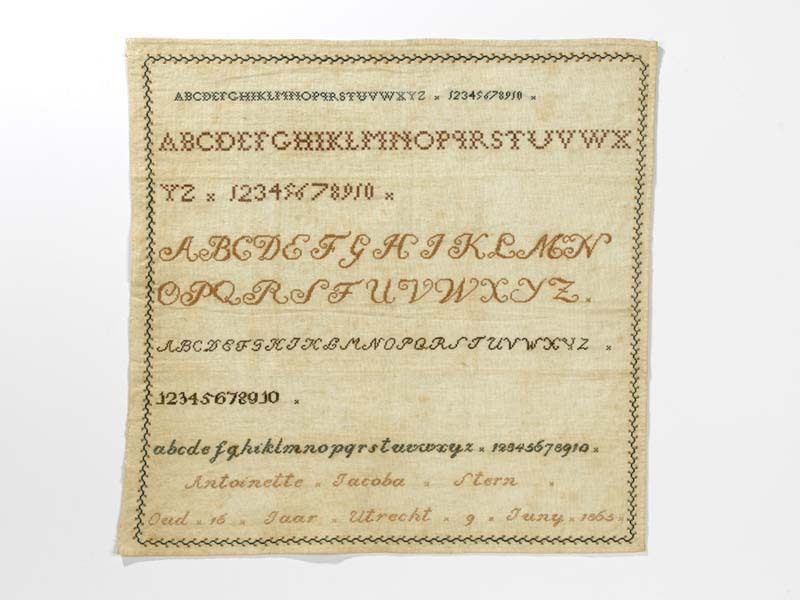 ABCDEFGHIKLMNOPQRSTUVWXYZ × 12345678910 ×
ABCDEFGHIKLMNOPQRSTUVWX
YZ × 12345678910 ×
ABCDEFGHIKLMN
OPQRSTUVWXYZ.
ABCDEFGHIKLMNOPQRSTUVWXYZ ×
12345678910 ×
abcdefghiklmnopqrstuvwxyz × 12345678910 ×
Antoinette × Jacoba × Stern ×
Oud × 16 × Jaar × Utrecht × 9 × Juny × 1865 ×